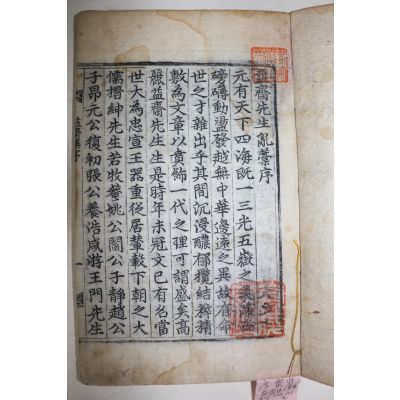 益齋先生亂藁序
元有天下四海旣一三光五嶽之氣渾淪
磅礴動盪發越無中華邊遠之異故有命
世之才雜出乎其間沉浸醲郁攬結粹精
敷為文章以賁飾一代之理可謂盛矣高
麗益齋先生生是時年未冠文已有名當
世大為忠宣王器重從居輦轂下朝之大
儒搢紳先生若牧菴姚公閻公子靜趙公
子昂元公復初張公養浩咸游王門先生